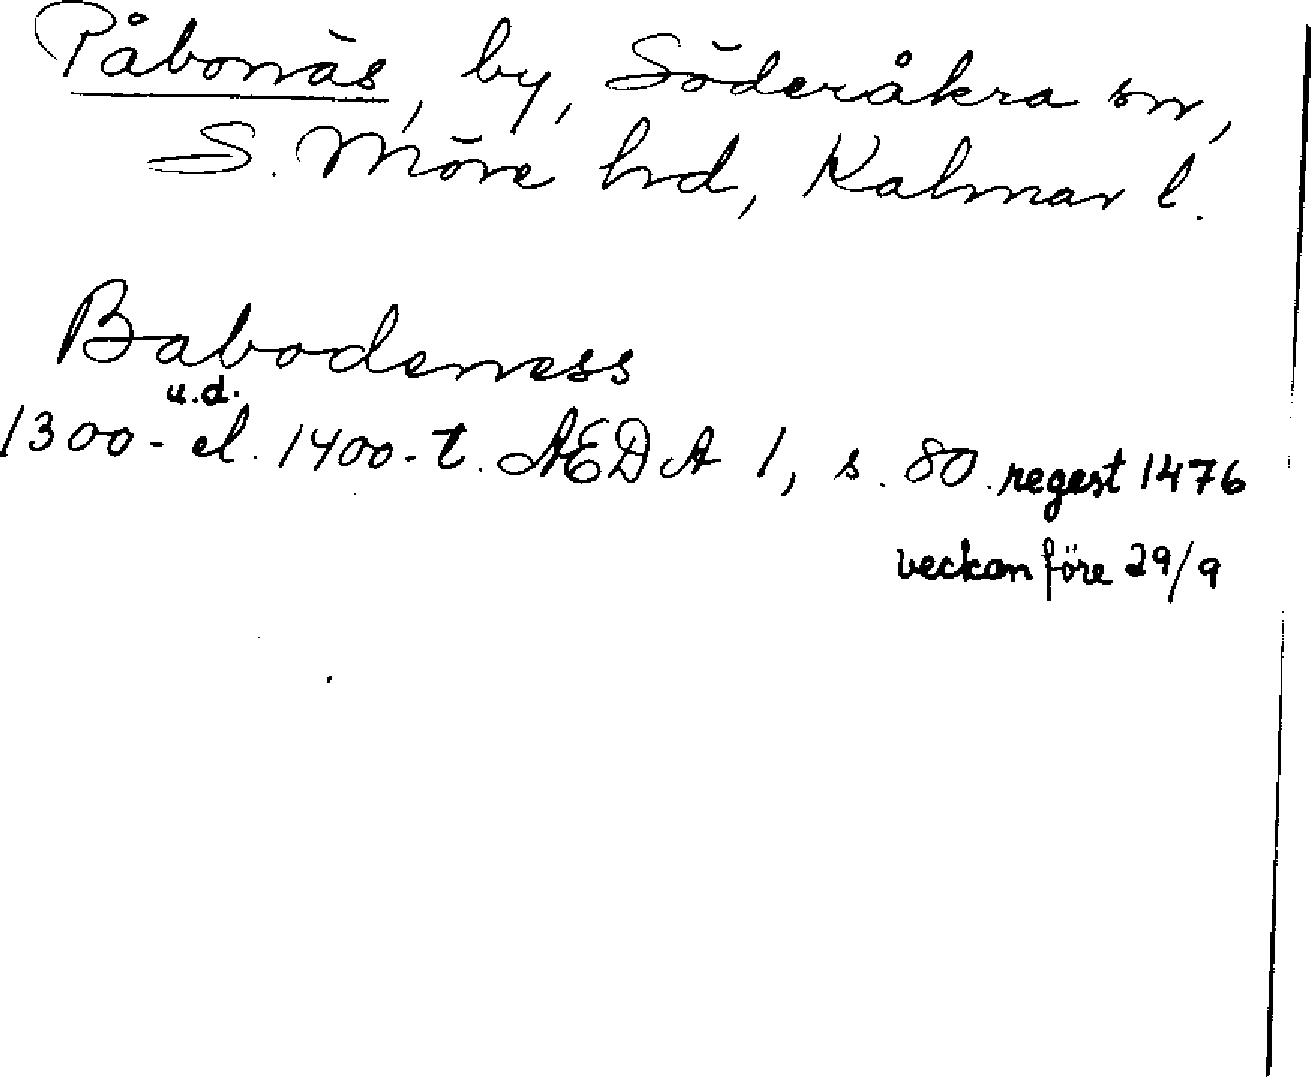 Påbonäs, by, Söderåkra sn,
S. Möre hd, Kalmar l.
Babodeness
u.d.
1300- el. 1400-t. ÆDA 1, s. 80. regest 1476
veckan före 29/9